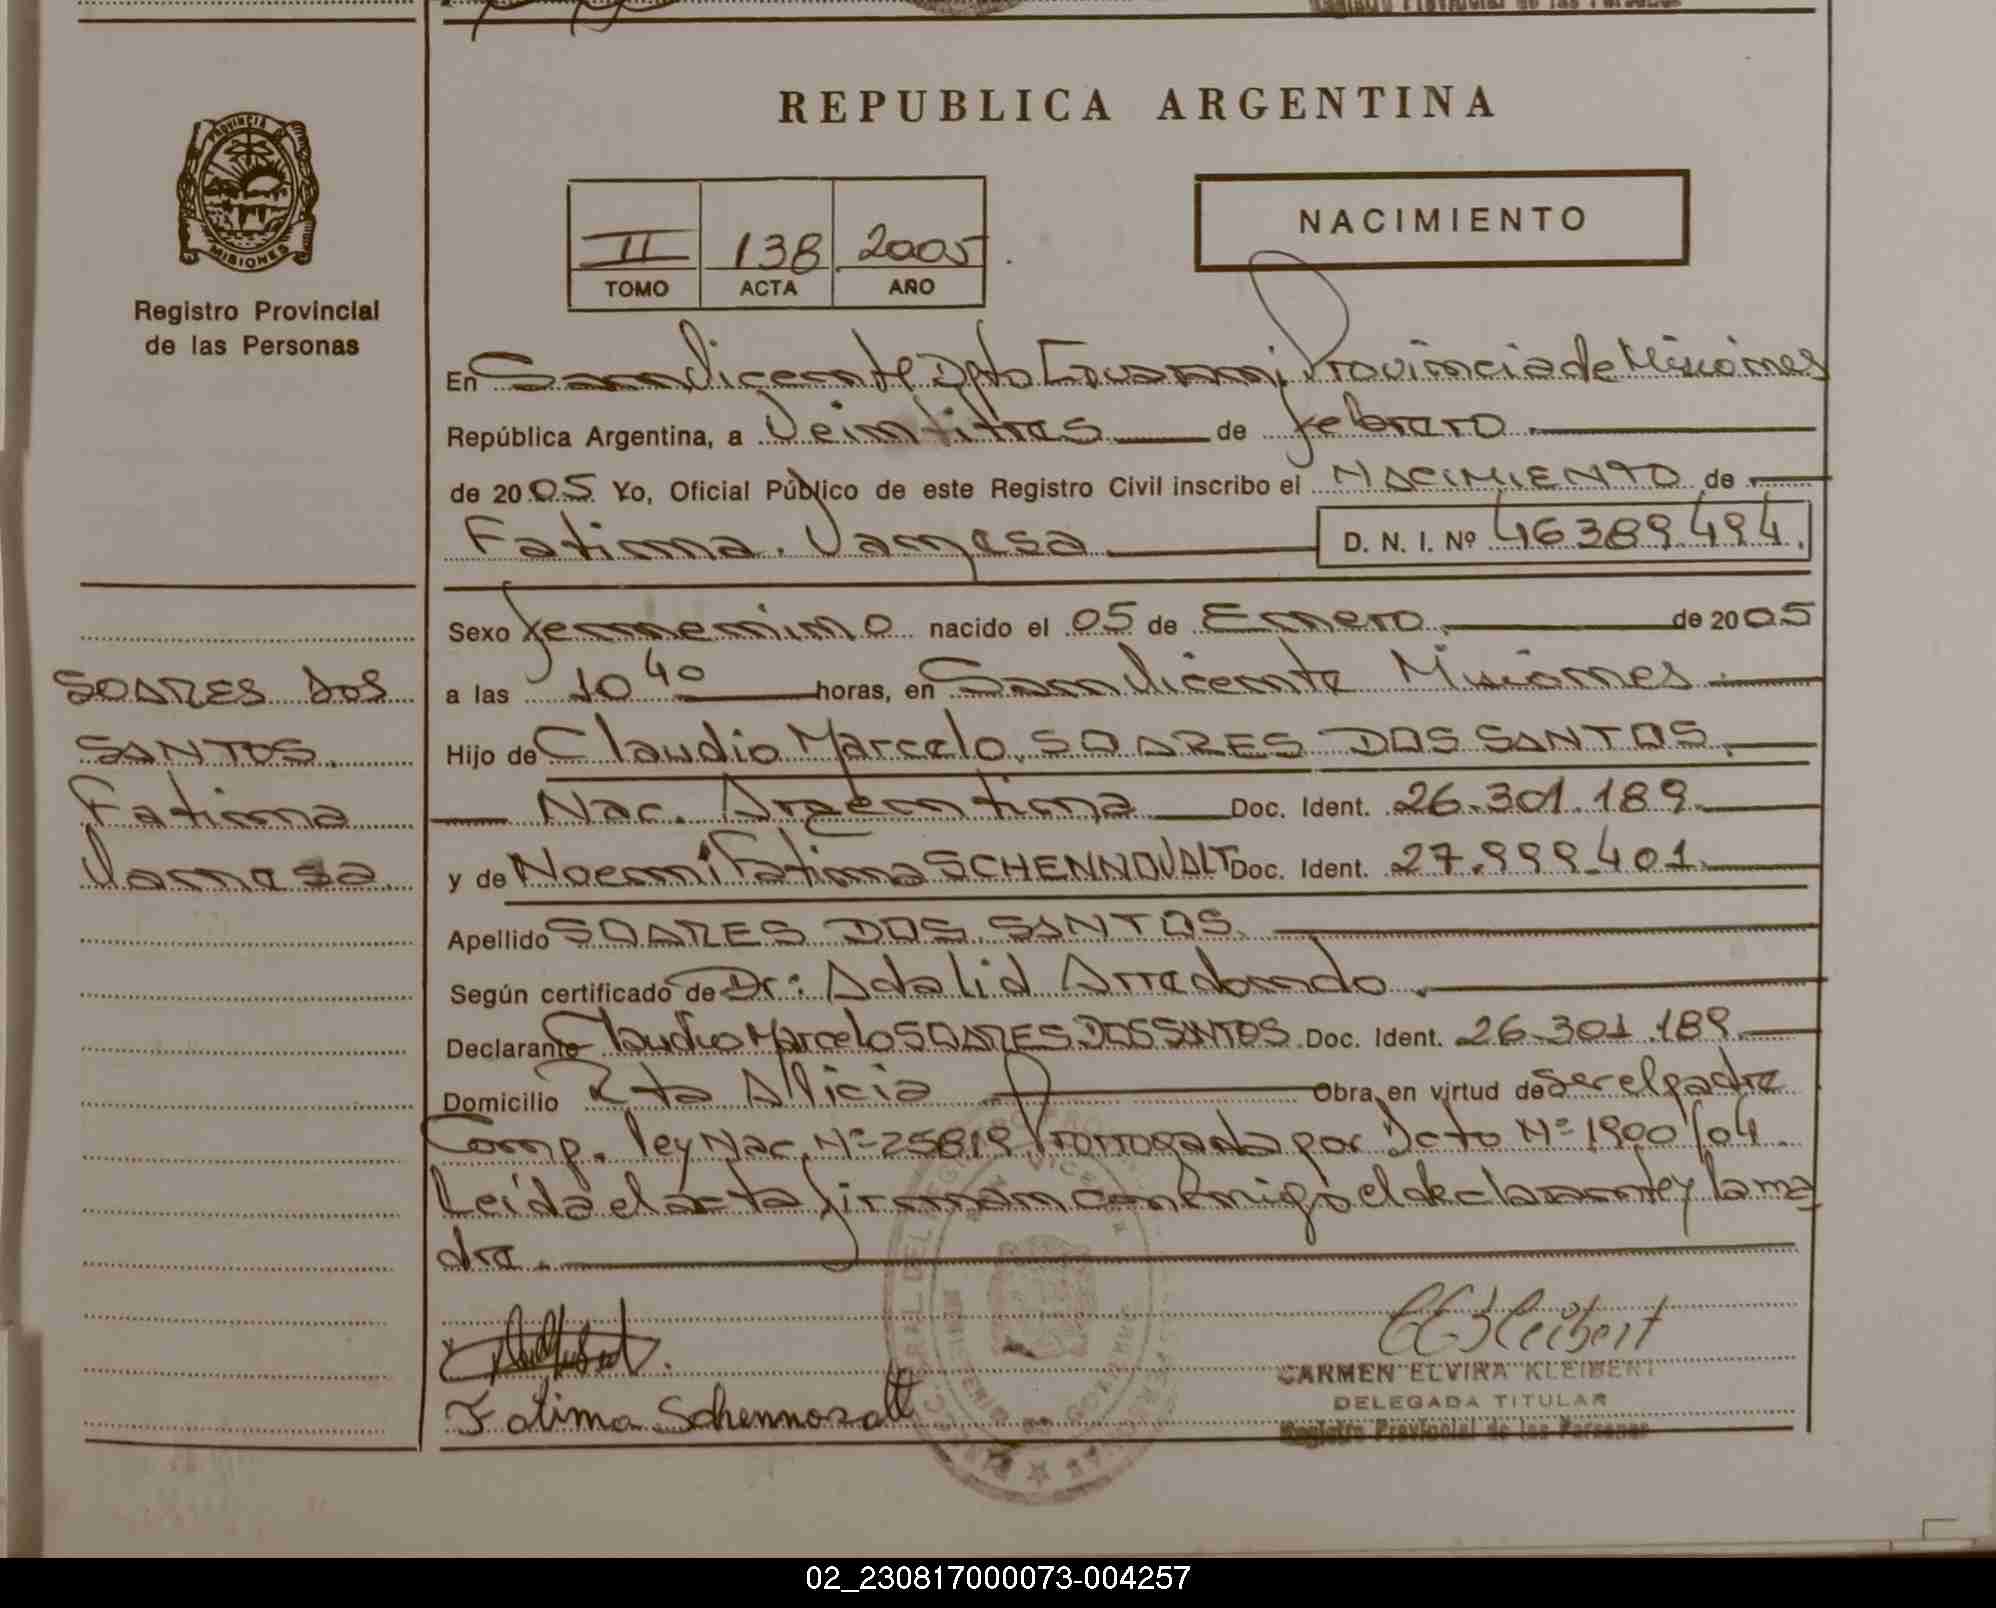 REPUBLICA ARGENTINA
PROVINCIA DE
MISIONES
Registro Provincial
de las Personas
II 138 2005
TOMO ACTA AÑO
NACIMIENTO
En San Vicente Dpto Guaraní Provincia de Misiones
República Argentina, a Veintitres de febrero
de 2005 Yo, Oficial Público de este Registro Civil inscribo el NACIMIENTO de
Fatima Vanesa D. N. I. Nº 46389494
Sexo femenino nacido el 05 de Enero de 2005
a las 10 40 horas, en San Vicente Misiones
Hijo de Claudio Marcelo SOARES DOS SANTOS
Nac. Argentina Doc. Ident. 26.301.189
y de Noemi Fatima SCHENNOVALT Doc. Ident. 27.999.401
Apellido SOARES DOS SANTOS
Según certificado de Dr: Adalid Arredondo
Declarante Claudio Marcelo SOARES DOS SANTOS Doc. Ident. 26.301.189
Domicilio Rta Alicia Obra en virtud de ser el padre
Comp. ley Nac. Nº 25819 Prorrogada por Dcto Nº 1900/04
Leida el acta firman conmigo el declarante y la ma
dre.
SOARES DOS
SANTOS.
Fatima
Vanesa
Fatima Schennovalt
CARMEN ELVIRA KLEIBERT
DELEGADA TITULAR
Registro Provincial de las Personas
02_230817000073-004257